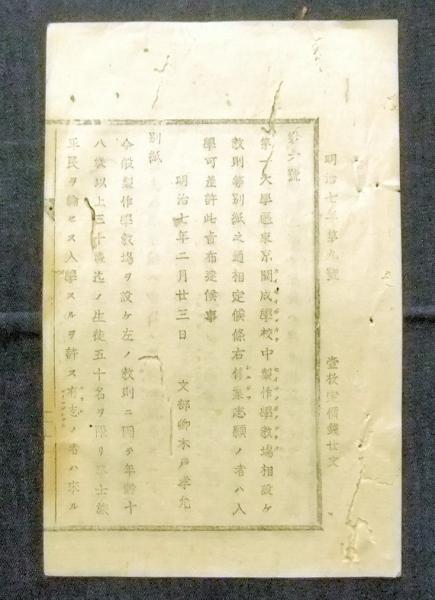 明治七年第九號 壹枚定價錢廿文
第六號
第一大學區東京開成學校中製作學教場相設ケ
教則等別紙之通相定候條右修業志願ノ者ハ入
學可差許此旨布達候事
明治七年二月廿三日 文部卿木戸孝允
別紙
今般製作學教場ヲ設ケ左ノ教則ニ因テ年齡十
八歳以上三十歳迄ノ生徒五十名ヲ限リ華士族
平民ヲ論セス入學スルヲ許ス有志ノ者ハ來ル